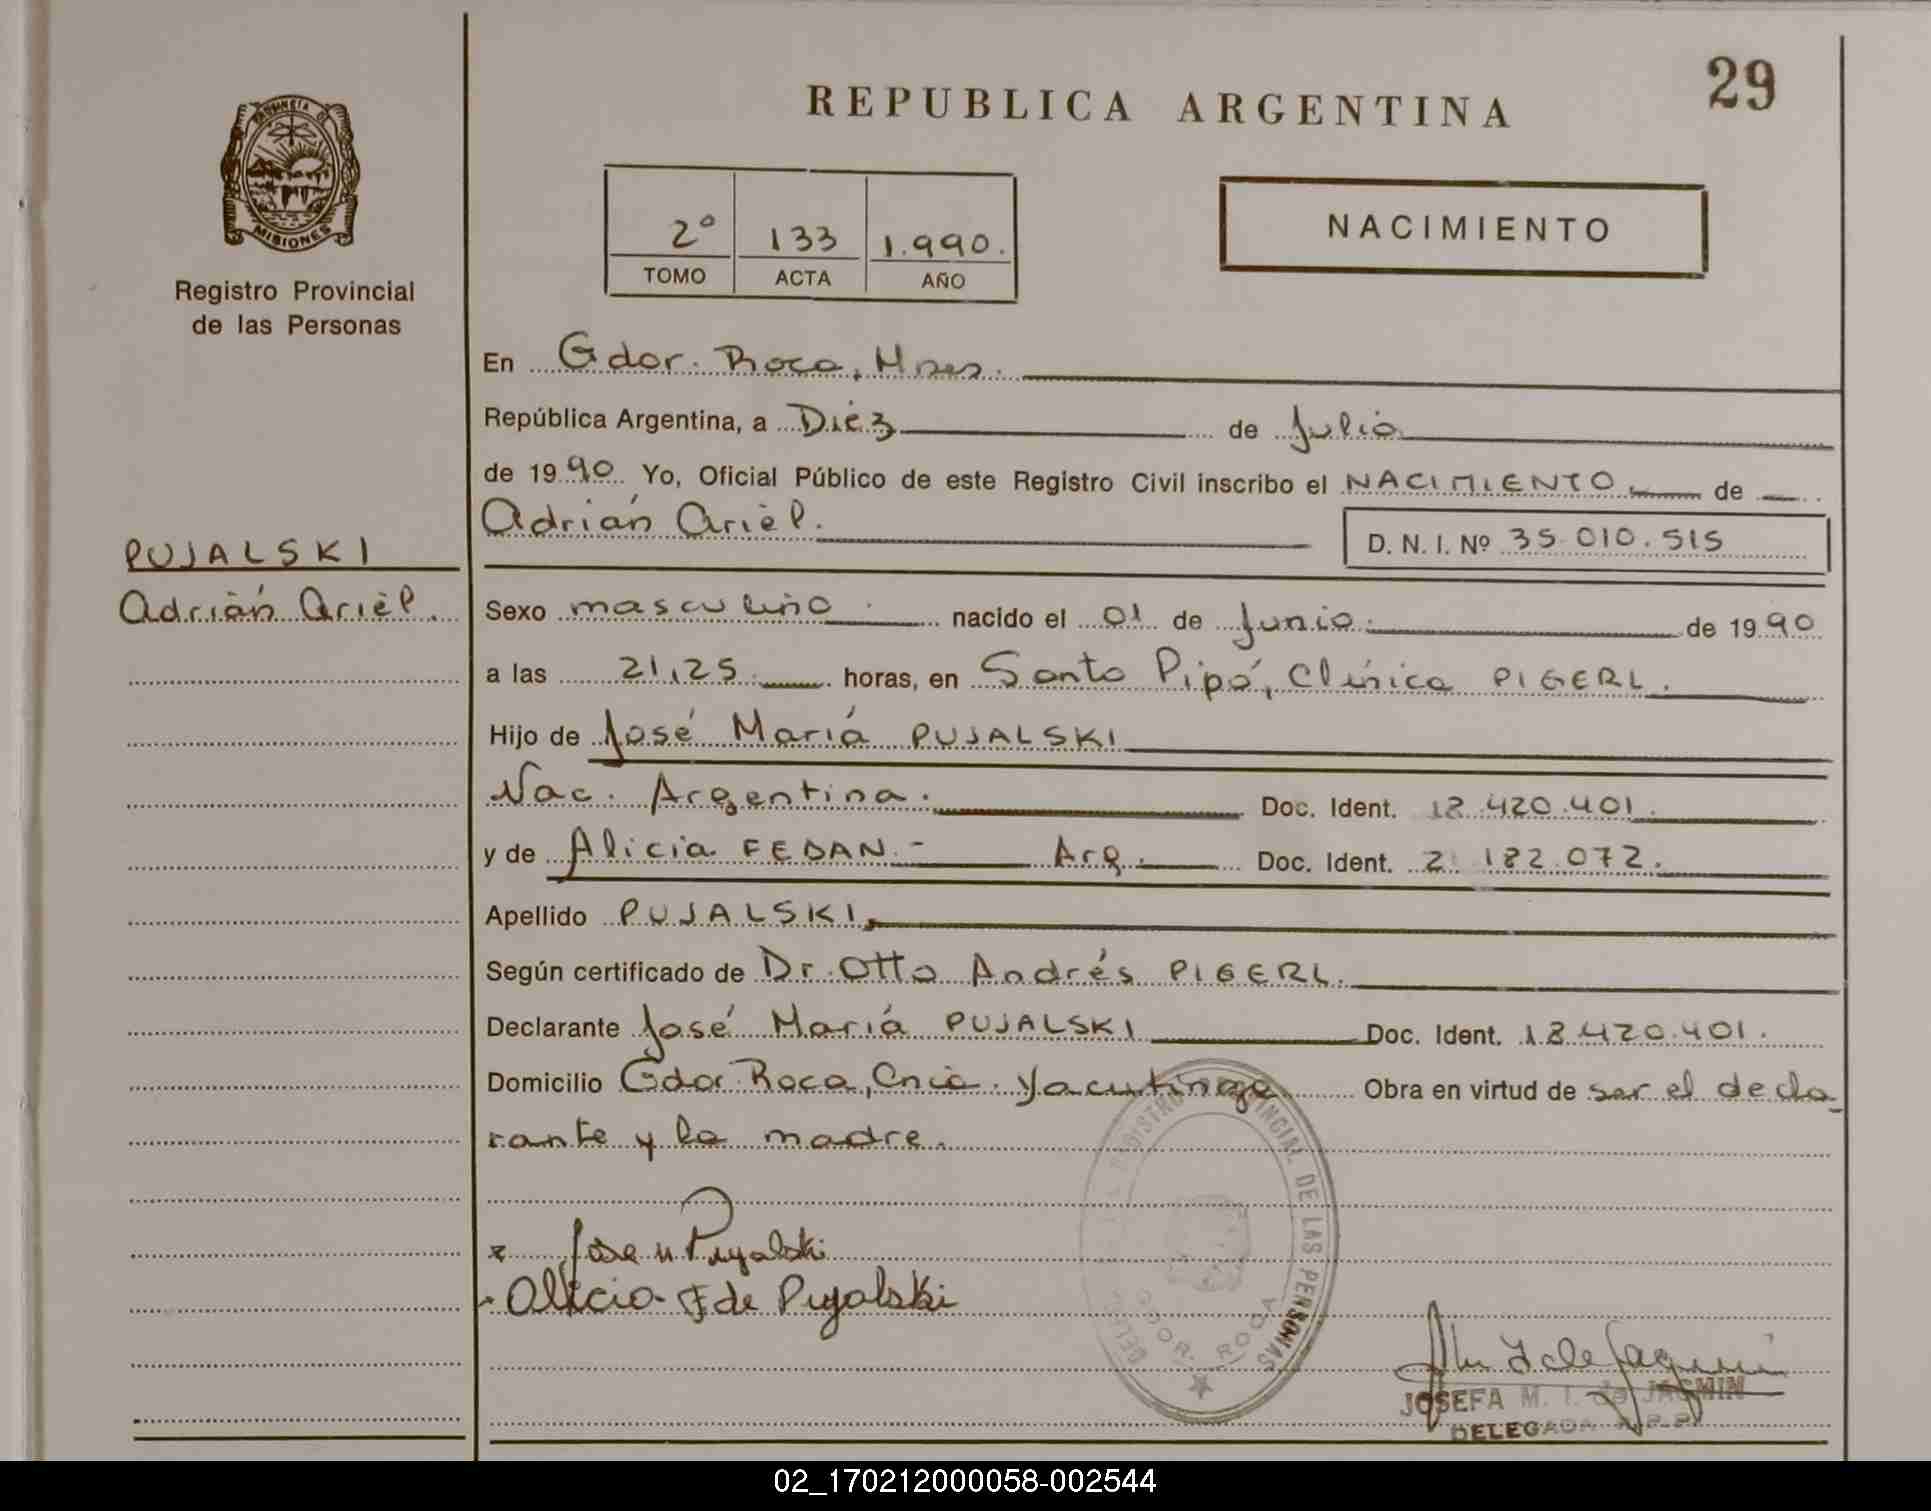 REPUBLICA ARGENTINA
29
PROVINCIA DE
MISIONES
Registro Provincial
de las Personas
2º 133 1.990.
TOMO ACTA AÑO
NACIMIENTO
En Gdor. Roca, Mnes.
República Argentina, a Diez de Julio
de 1990 Yo, Oficial Público de este Registro Civil inscribo el NACIMIENTO de
Adrián Ariel.
D. N. I. Nº 35.010.515
PUJALSKI
Adrián Ariel.
Sexo masculino nacido el 01 de Junio de 1990
a las 21,25 horas, en Santo Pipó, Clínica PIGERL.
Hijo de José María PUJALSKI
Nac. Argentina. Doc. Ident. 18.420.401.
y de Alicia FEDAN.- Arg. Doc. Ident. 2 182.072.
Apellido PUJALSKI,
Según certificado de Dr. Otto Andrés PIGERL.
Declarante José María PUJALSKI Doc. Ident. 18.420.401.
Domicilio Gdor. Roca, Cnia. Yacutinga Obra en virtud de ser el decla-
rante y la madre.
José M Pujalski
Alicia F de Pujalski
REGISTRO PROVINCIAL DE LAS PERSONAS
GDOR. ROCA
JOSEFA M. I. de JASMIN
DELEGADA R.P.P.
02_170212000058-002544